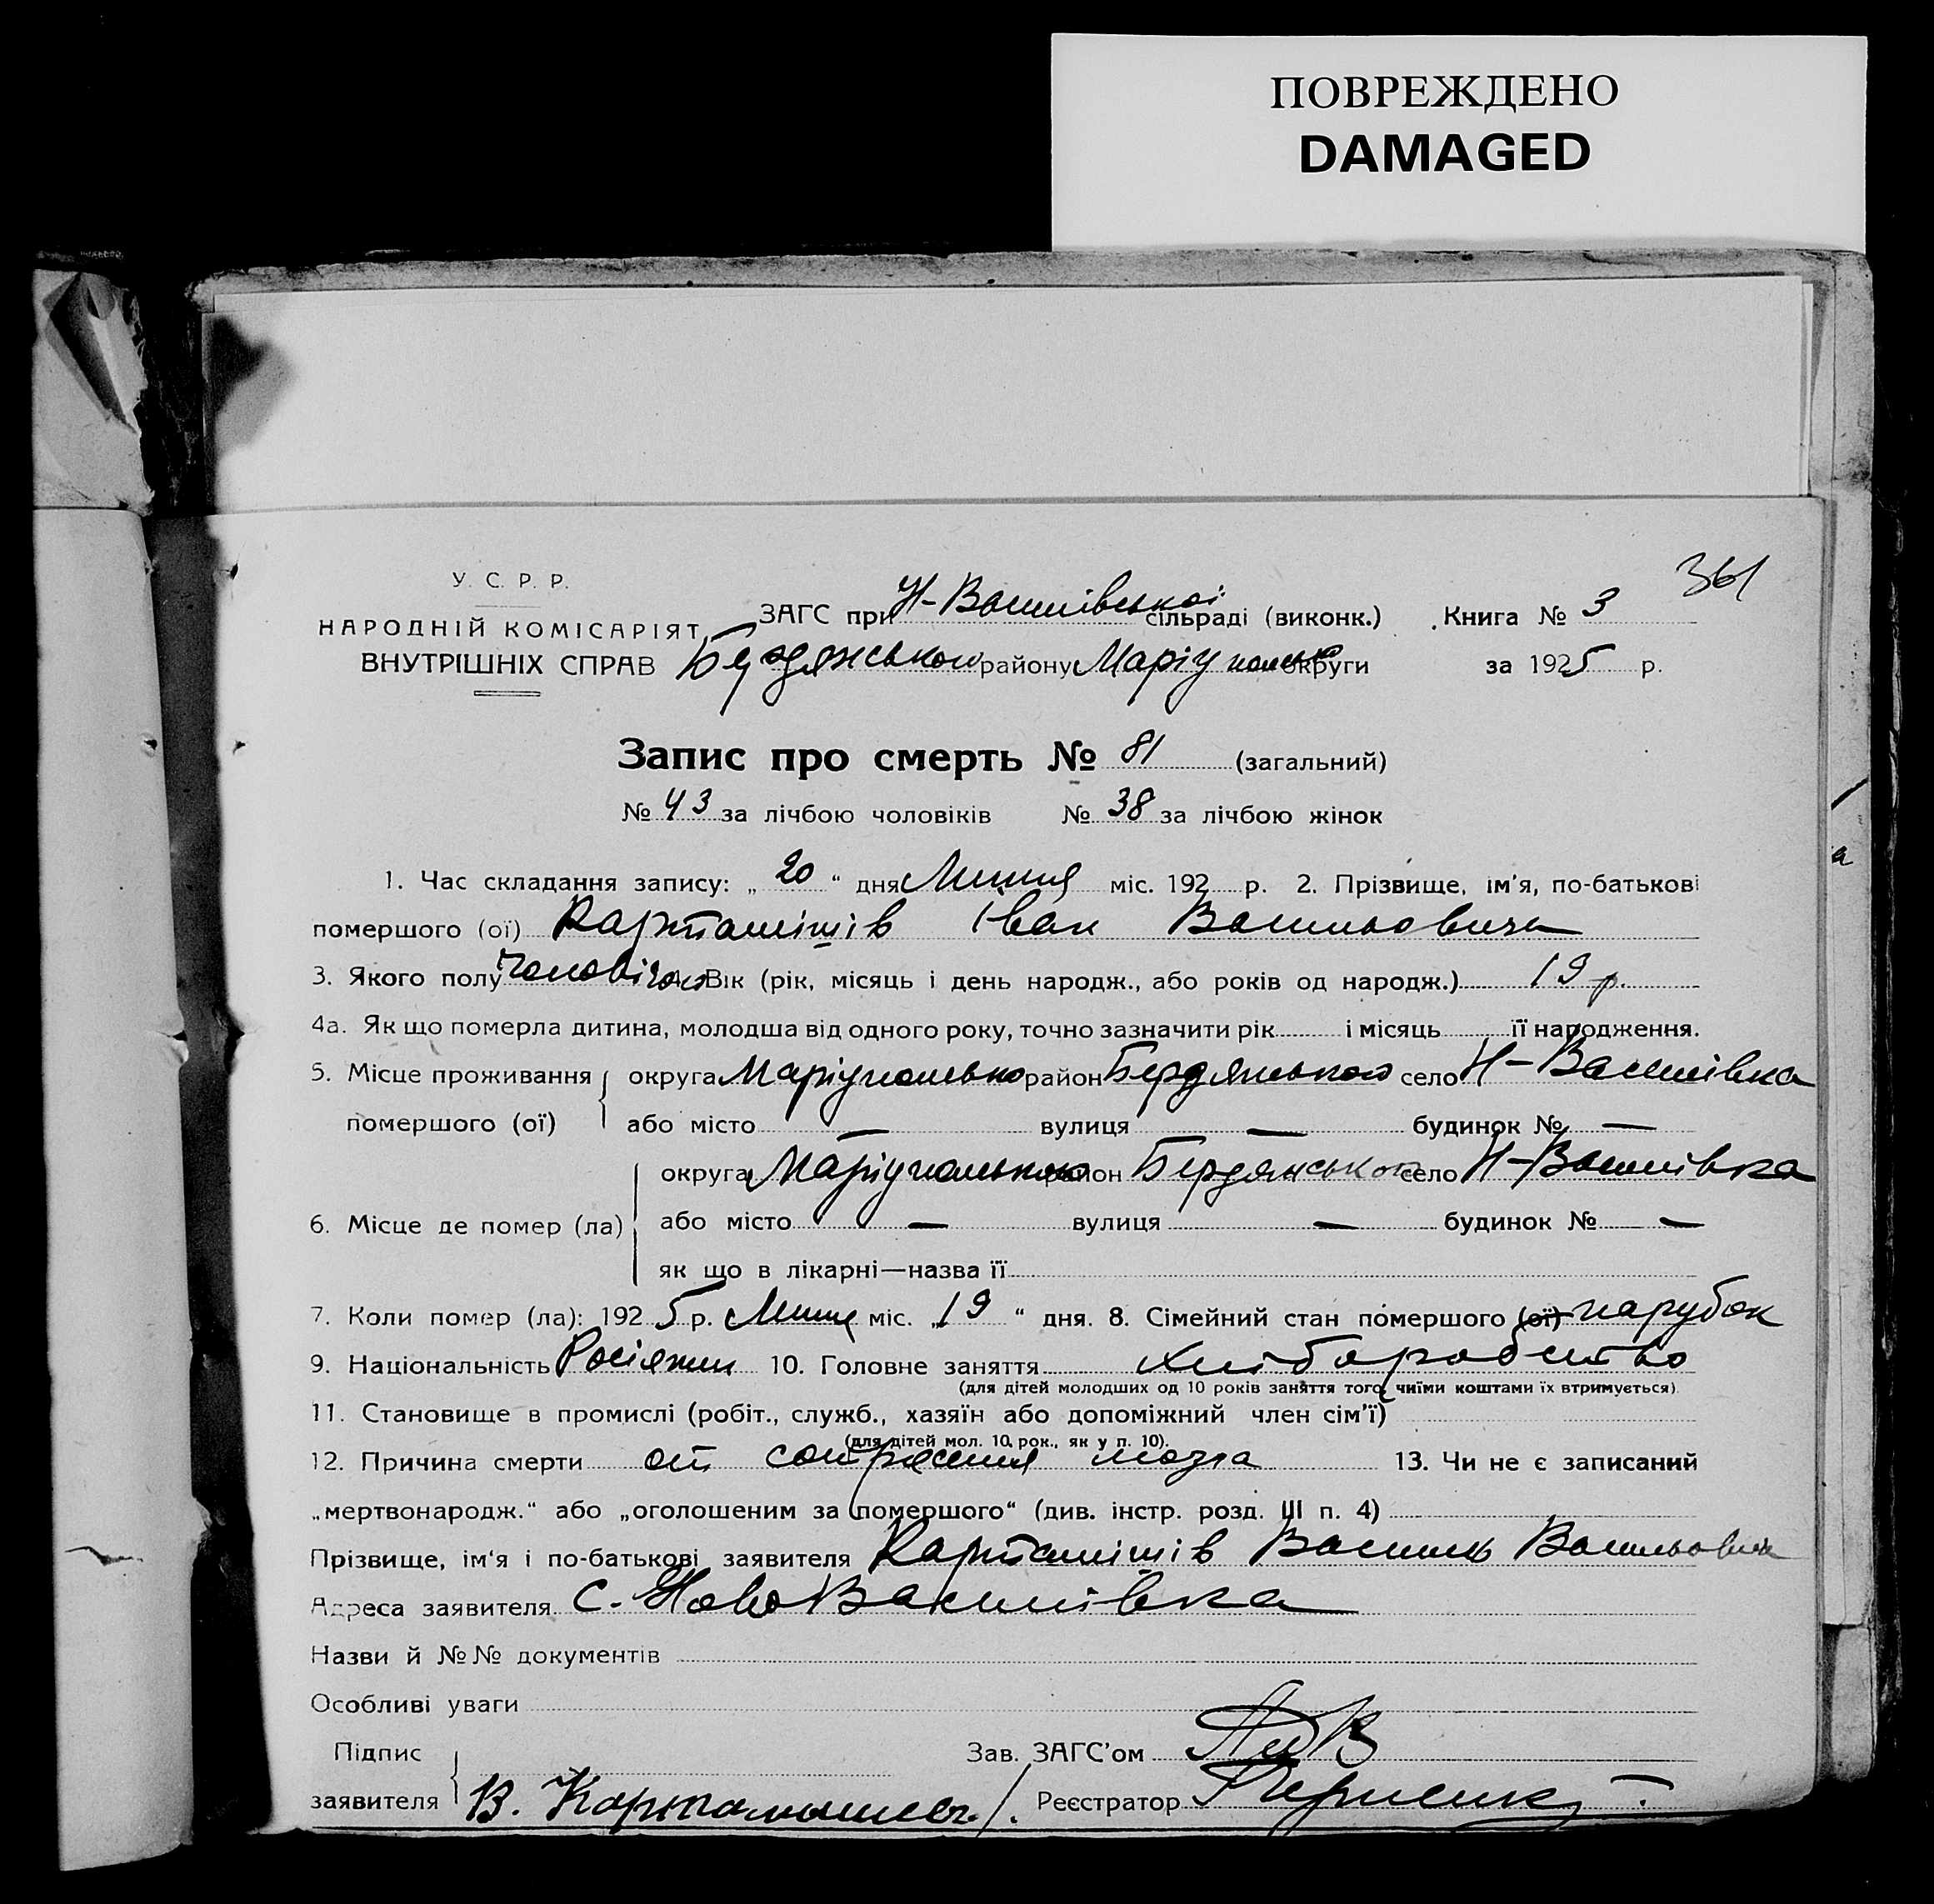 ПОВРЕЖДЕНО
DAMAGED
361
У. С. Р. Р.
НАРОДНІЙ КОМІСАРІЯТ
ВНУТРІШНІХ СПРАВ
ЗАГС при Н-Василівської сільраді (виконк.) Книга № 3
Бердянського району Маріупольсько округи за 1925 р.
Запис про смерть № 81 (загальний)
№ 43 за лічбою чоловіків № 38 за лічбою жінок
1. Час складання запису: „ 20 “ дня Липня міс. 192 р. 2. Прізвище, ім'я, по-батькові
помершого (ої) Карташишів Іван Васильович
3. Якого полу чоловічого Вік (рік, місяць і день народж., або років од народж.) 19 р.
4а. Як що померла дитина, молодша від одного року, точно зазначити рік і місяць її народження.
5. Місце проживання округа Маріупольсько район Бердянського село Н-Василівка
помершого (ої) або місто — вулиця — будинок № —
округа Маріупольсько район Бердянського село Н-Василівка
6. Місце де помер (ла) або місто — вулиця — будинок № —
як що в лікарні—назва її
7. Коли помер (ла): 1925 р. Липня міс. „ 19 “ дня. 8. Сімейний стан помершого (ої) парубок
9. Національність Росіянин 10. Головне заняття хліборобство
(для дітей молодших од 10 років заняття того, чиїми коштами їх втримується).
11. Становище в промислі (робіт., служб., хазяїн або допоміжний член сім'ї)
(для дітей мол. 10 рок., як у п. 10).
12. Причина смерти от сотрясения мозга 13. Чи не є записаний
„мертвонародж.“ або „оголошеним за помершого“ (див. інстр. розд. III п. 4)
Прізвище, ім'я і по-батькові заявителя Василь Васильович
Адреса заявителя С. НовоВасилівка
Назви й №№ документів
Особливі уваги
Підпис Зав. ЗАГС'ом
заявителя В. Картамышев Реєстратор